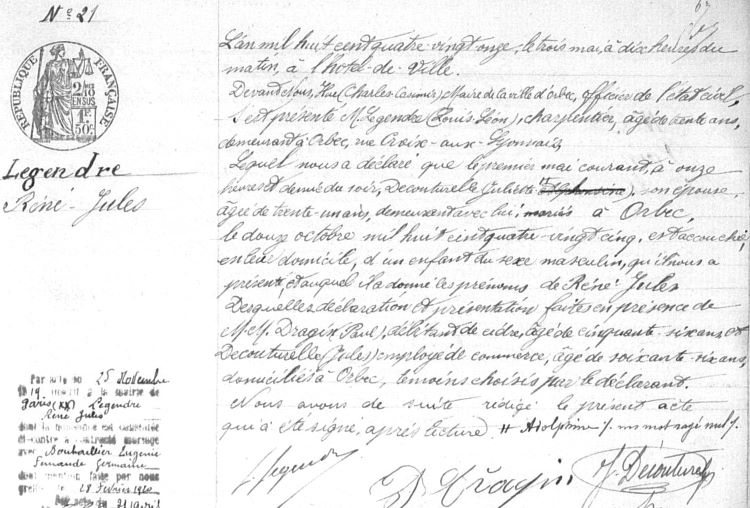 N° 21
RÉPUBLIQUE FRANÇAISE
2/10 EN SUS
1F 50c
Legendre
Réné-Jules
L'an mil huit cent quatre-vingt onze, le trois mai, à dix heures du
matin, à l'hôtel-de-Ville.
Devant Nous, Hue (Charles Casimir) Maire de la ville d'Orbec, officier de l'état civil,
S'est présenté M. Legendre (Louis Léon), charpentier, âgé de trente ans,
demeurant à Orbec, rue Croix-aux-Lyonnais
Lequel nous a déclaré que le premier mai courant, à onze
heures et demie du soir, Decouturelle (Juliette), son épouse,
âgée de trente-un ans, demeurant avec lui, mariés à Orbec,
le douze octobre mil huit cent quatre-vingt cinq, est accouchée,
en leur domicile, d'un enfant du sexe masculin, qu'il nous a
présenté, et auquel il a donné les prénoms de Réné Jules
Desquelles déclaration et présentation faites en présence de
M.M. Dragin (Paul), débitant de cidre, âgé de cinquante-six ans, et
Decouturelle (Jules) employé de commerce, âgé de soixante-six ans,
domiciliés à Orbec, témoins choisis par le déclarant.
Nous avons de suite rédigé le présent acte
qui a été signé, après lecture # un mot rayé nul
Legendre
Dragin
J. Decouturelle
Par acte du 25 Novembre
1919 inscrit à la mairie de
Paris (XX) Legendre
Réné Jules
dont la naissance est constatée
ci-contre a contracté mariage
avec Bouhaillier Eugénie
Fernande Germaine
dont mention faite par nous
greffier le 28 Février 1920
21 avril